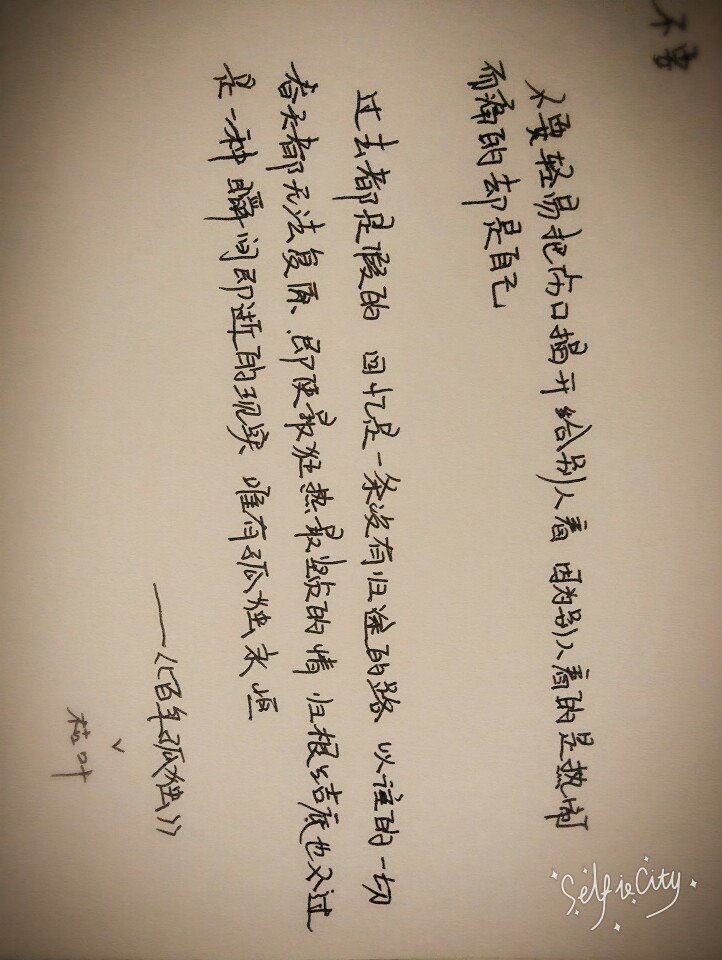 不要
不要轻易把伤口揭开给别人看 因为别人看的是热闹
而痛的却是自己
过去都是假的 回忆是一条没有归途的路 以往的一切
春天都无法复原、即使最狂热最坚贞的情 归根结底也不过
是一种瞬间即逝的现实 唯有孤独永恒
——《百年孤独》
桔叶
SelfieCity